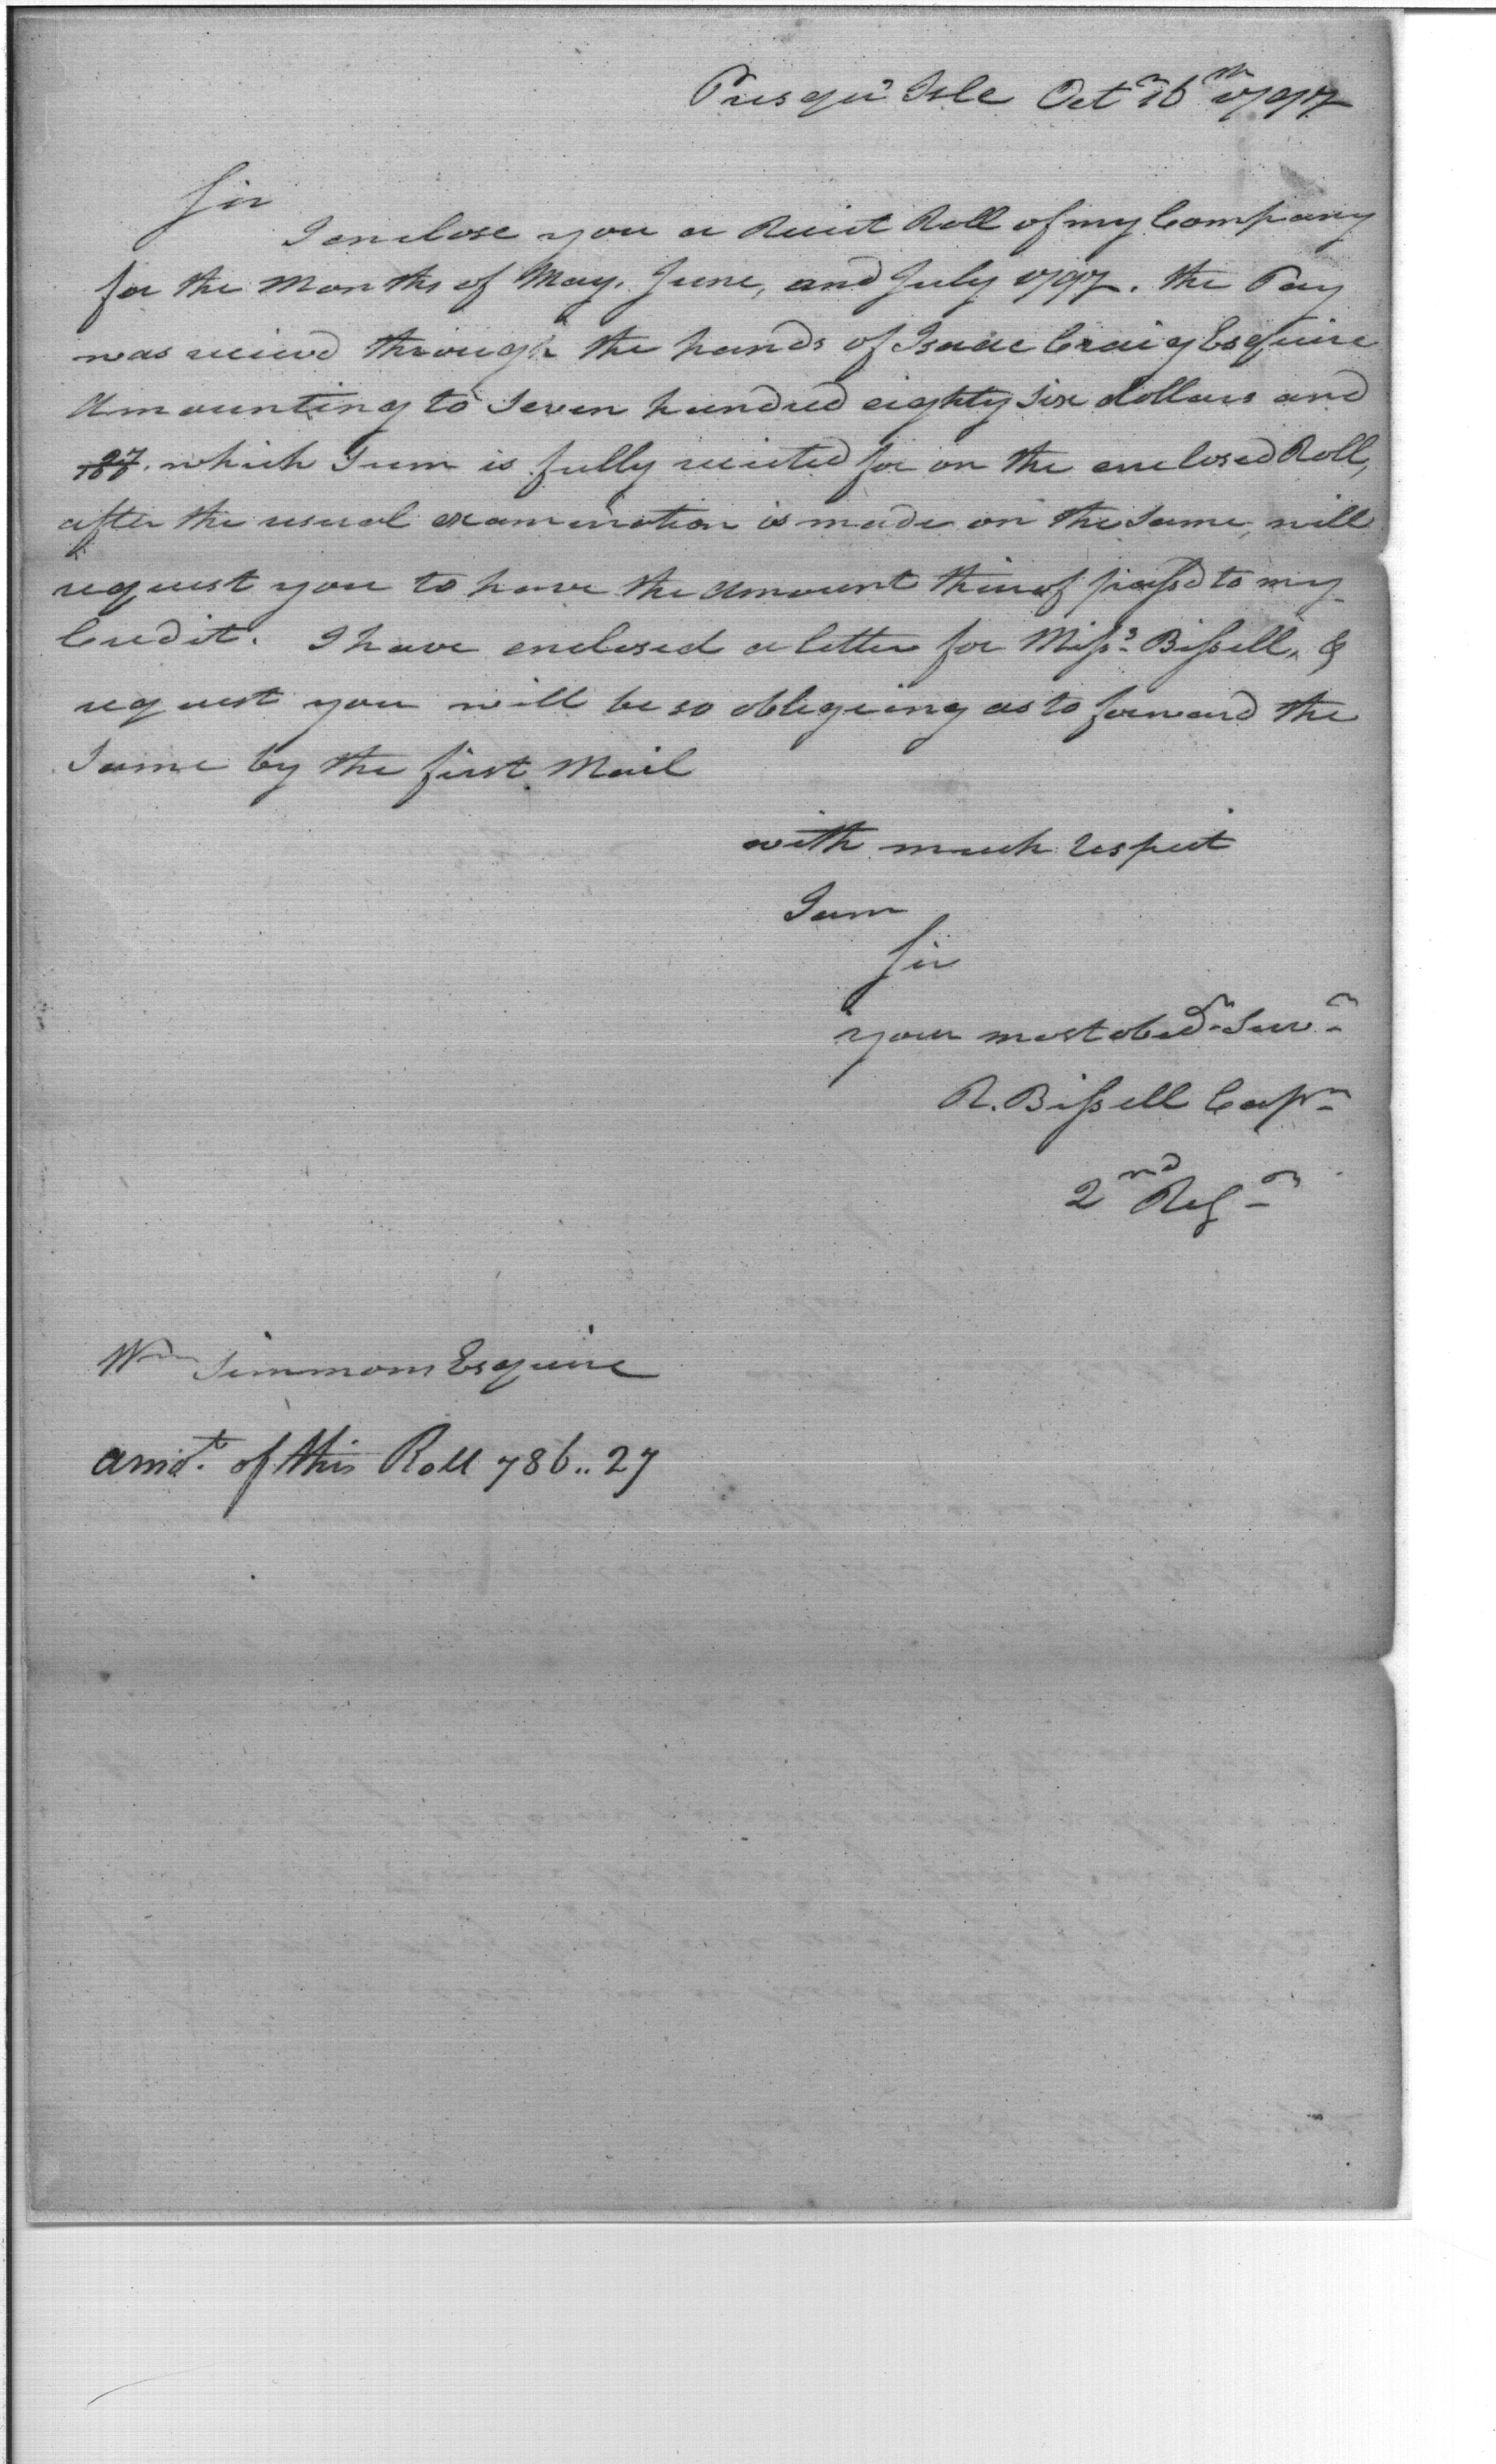 Presqu' Isle Octr 16th 1797
Sir
I enclose you a Reciet Roll of my Company
for the Months of May, June, and July 1797. the Pay
was recieved through the hands of Isaac Craig Esquire
Amounting to Seven hundred eighty Six dollars and
27/100. which Sum is fully recieted for on the enclosed Roll,
after the usual examination is made on the Same, will
request you to have the amount thereof passd to my
Credit. I have enclosed a letter for Misss Bissell, &
request you will be so obligeing as to forward the
Same by the first Mail
with much respect
I am
Sir
your most obedt Servt
R. Bissell Capn
2nd Regt
Wm Simmons Esquire
amot. of this Roll 786..27